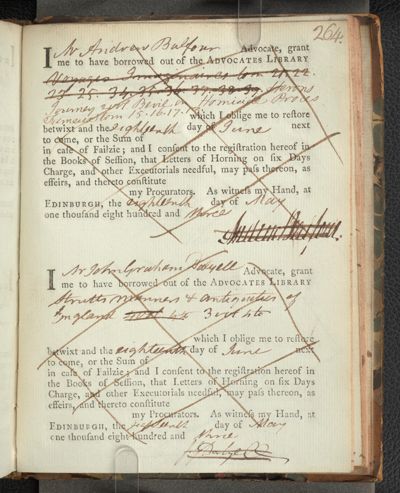 264.
I Mr Andrew Balfour Advocate, grant
me to have borrowed out of the ADVOCATES LIBRARY
Voyages Imaginaires tom 21. 22.
27. 25. 34. 35. 36. 37. 38. 39.
Journey
15. 16. 17. which I oblige me to reſtore
betwixt and the Eighteenth day of June next
to come, or the Sum of
in caſe of Failzie; and I conſent to the regiſtration hereof in
the Books of Seſſion, that Letters of Horning on ſix Days
Charge, and other Executorials needful, may paſs thereon, as
effeirs, and thereto conſtitute
my Procurators. As witneſs my Hand, at
EDINBURGH, the eighteenth day of May
one thouſand eight hundred and three
I Mr John Graham Dalyell Advocate, grant
me to have borrowed out of the ADVOCATES LIBRARY
Strutts manners & antiquities of
England 3 vol 4to
which I oblige me to reſtore
betwixt and the eighteenth day of June next
to come, or the Sum of
in caſe of Failzie; and I conſent to the regiſtration hereof in
the Books of Seſſion, that Letters of Horning on ſix Days
Charge, and other Executorials needful, may paſs thereon, as
effeirs, and thereto conſtitute
my Procurators. As witneſs my Hand, at
EDINBURGH, the day of May
one thouſand eight hundred and three